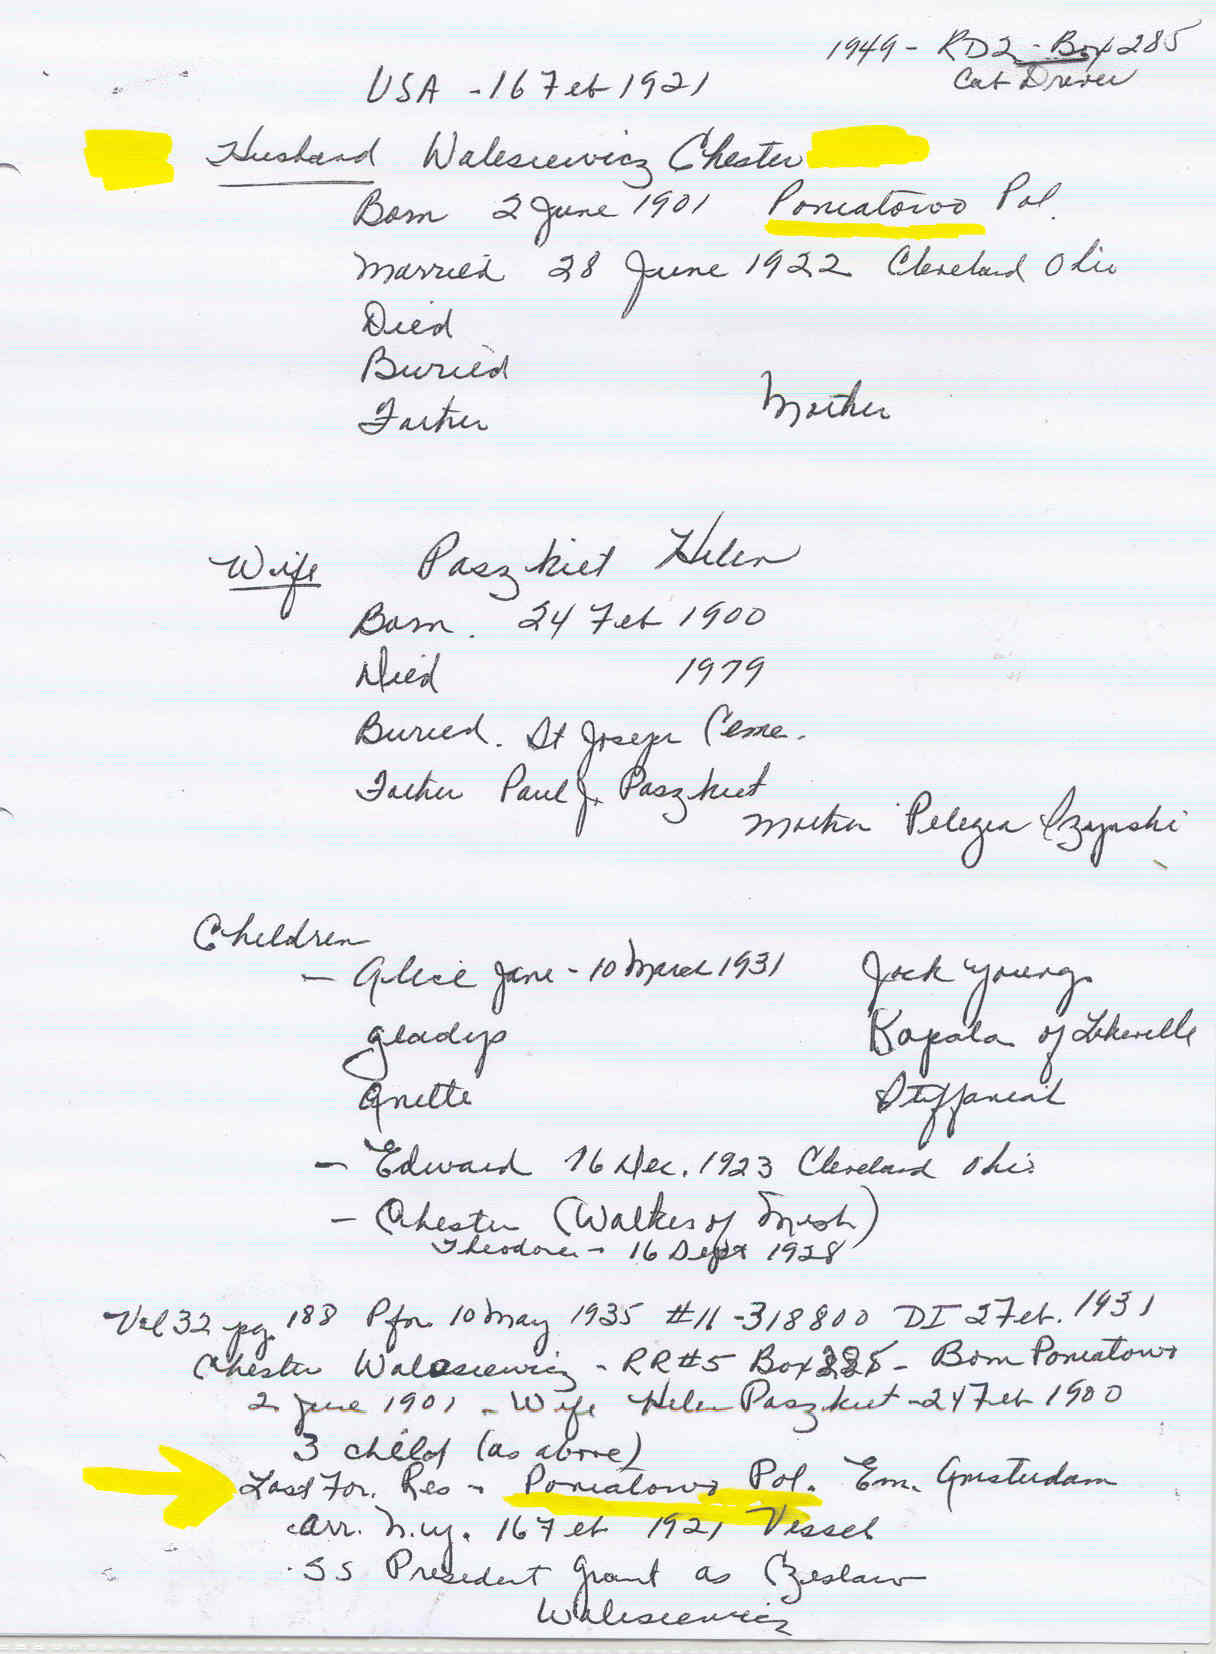 1949 - RD2 - Box 285
Cab Driver
USA - 16 Feb 1921
Husband Walesiewicz Chester
Born 2 June 1901 Poniatowo Pol.
Married 28 June 1922 Cleveland Ohio
Died
Buried
Father Mother
Wife Paszkiet Helen
Born. 24 Feb 1900
Died 1979
Buried. St Joseph Ceme.
Father Paul J. Paszkiet
Mother Pelegia
Children
- Alice Jane - 10 March 1931 Jack Youngs
Gladys Kapala of Lakeville
Anette Steffaniak
- Edward 16 Dec. 1923 Cleveland Ohio
- Chester (Walker of Mish)
Theodore - 16 Sept 1928
Vol 32 pg. 188 P for 10 May 1935 #11-318800 DI 2 Feb. 1931
Chester Walesiewicz - RR#5 Box - Born Poniatowo
2 June 1901 - Wife Helen Paszkiet - 24 Feb 1900
3 child (as above)
Last For. Res - Poniatowo Pol. Em. Amsterdam
arr. N.Y. 16 Feb 1921 Vessel
SS President Grant as Czeslaw
Walesiewicz